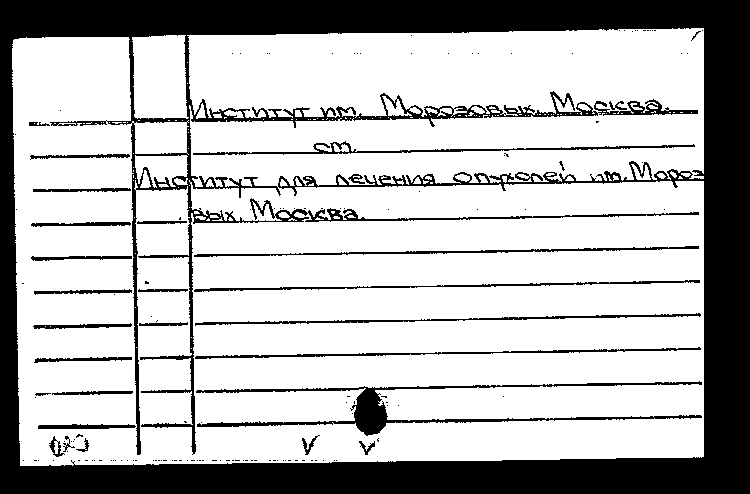 Институт им. Морозовых. Москва.
см.
Институт для лечения опухолей им. Мороз
вых. Москва.
V V